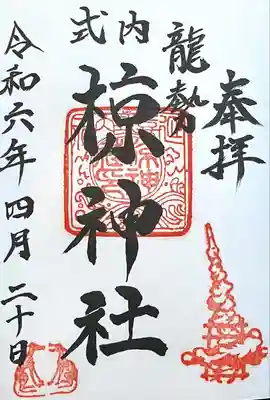 奉拝
龍勢
式内
椋神社
令和六年四月二十日